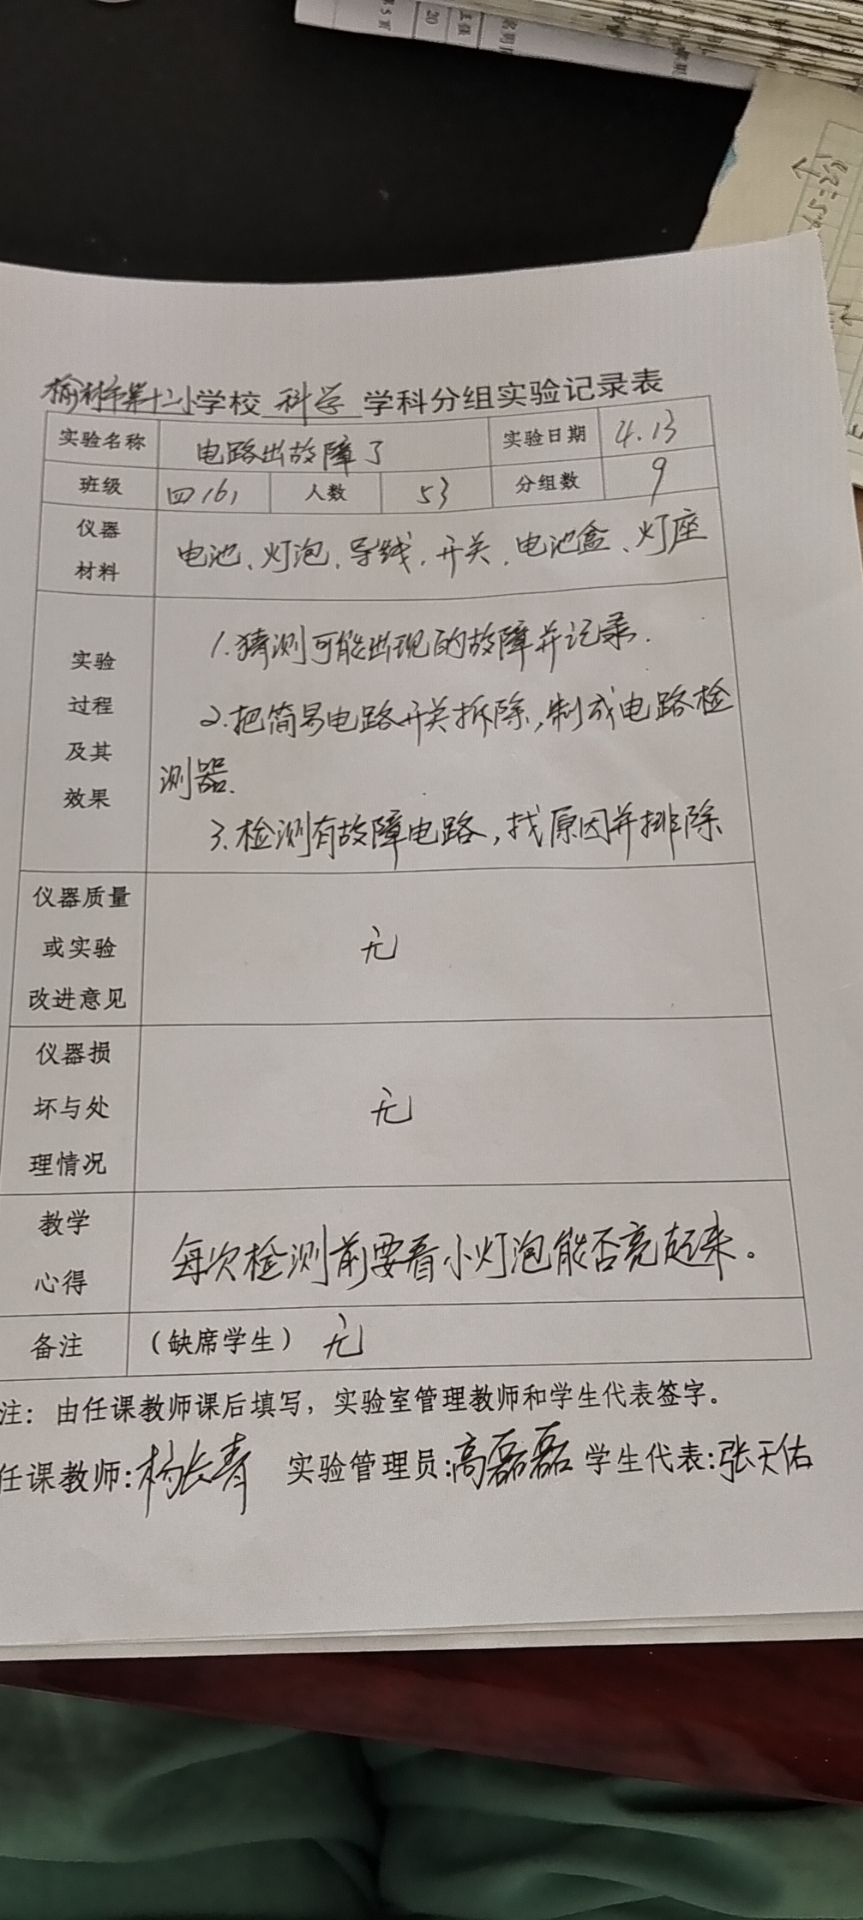 第5页
20
榆林市第十二小学校 科学 学科分组实验记录表
实验名称 电路出故障了 实验日期 4.13
班级 四(6) 人数 53 分组数 9
仪器
材料
电池、灯泡、导线、开关、电池盒、灯座
实验
过程
及其
效果
1.猜测可能出现的故障并记录.
2.把简易电路开关拆除,制成电路检
测器.
3.检测有故障电路,找原因并排除
仪器质量
或实验
改进意见
无
仪器损
坏与处
理情况
无
教学
心得
每次检测前要看小灯泡能否亮起来。
备注 (缺席学生) 无
注：由任课教师课后填写，实验室管理教师和学生代表签字。
任课教师:杨长青 实验管理员:高磊磊 学生代表:张天佑